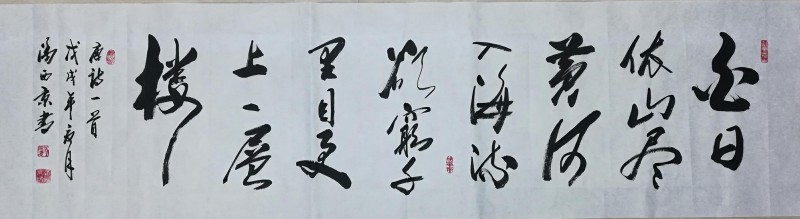 白日
依山尽
黄河
入海流
欲穷千
里目更
上一层
楼
唐诗一首
戊戌年 月
书